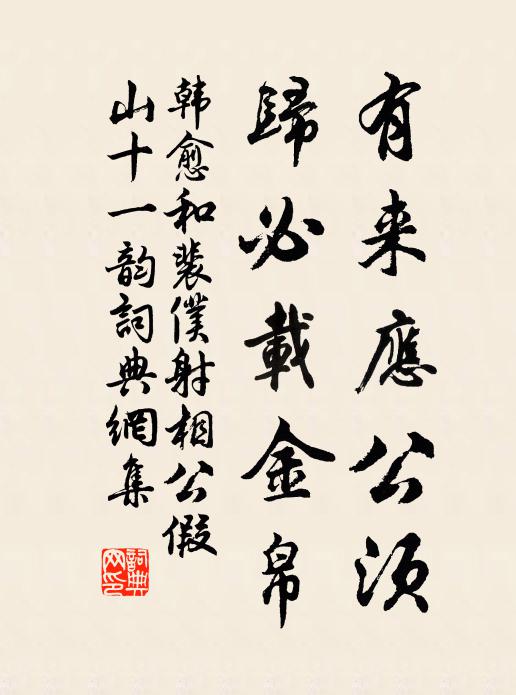 有来應公須
歸必載金帛
韩愈和裴僕射相公假
山十一韵詞典網集
詞典网印